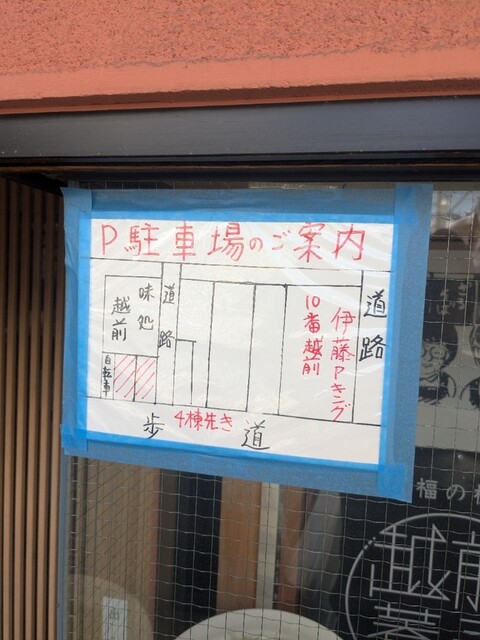 P駐車場のご案内
味処
越前
道路
自転車
伊藤Pキング
10番越前
道路
4棟先き
歩道
福の
越前